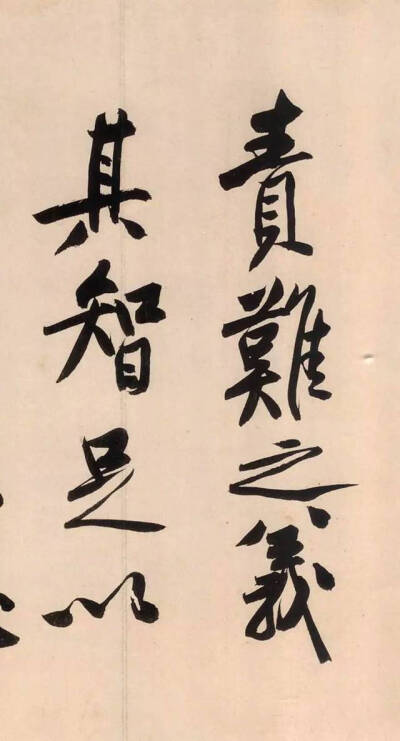 責難之義
其智足以